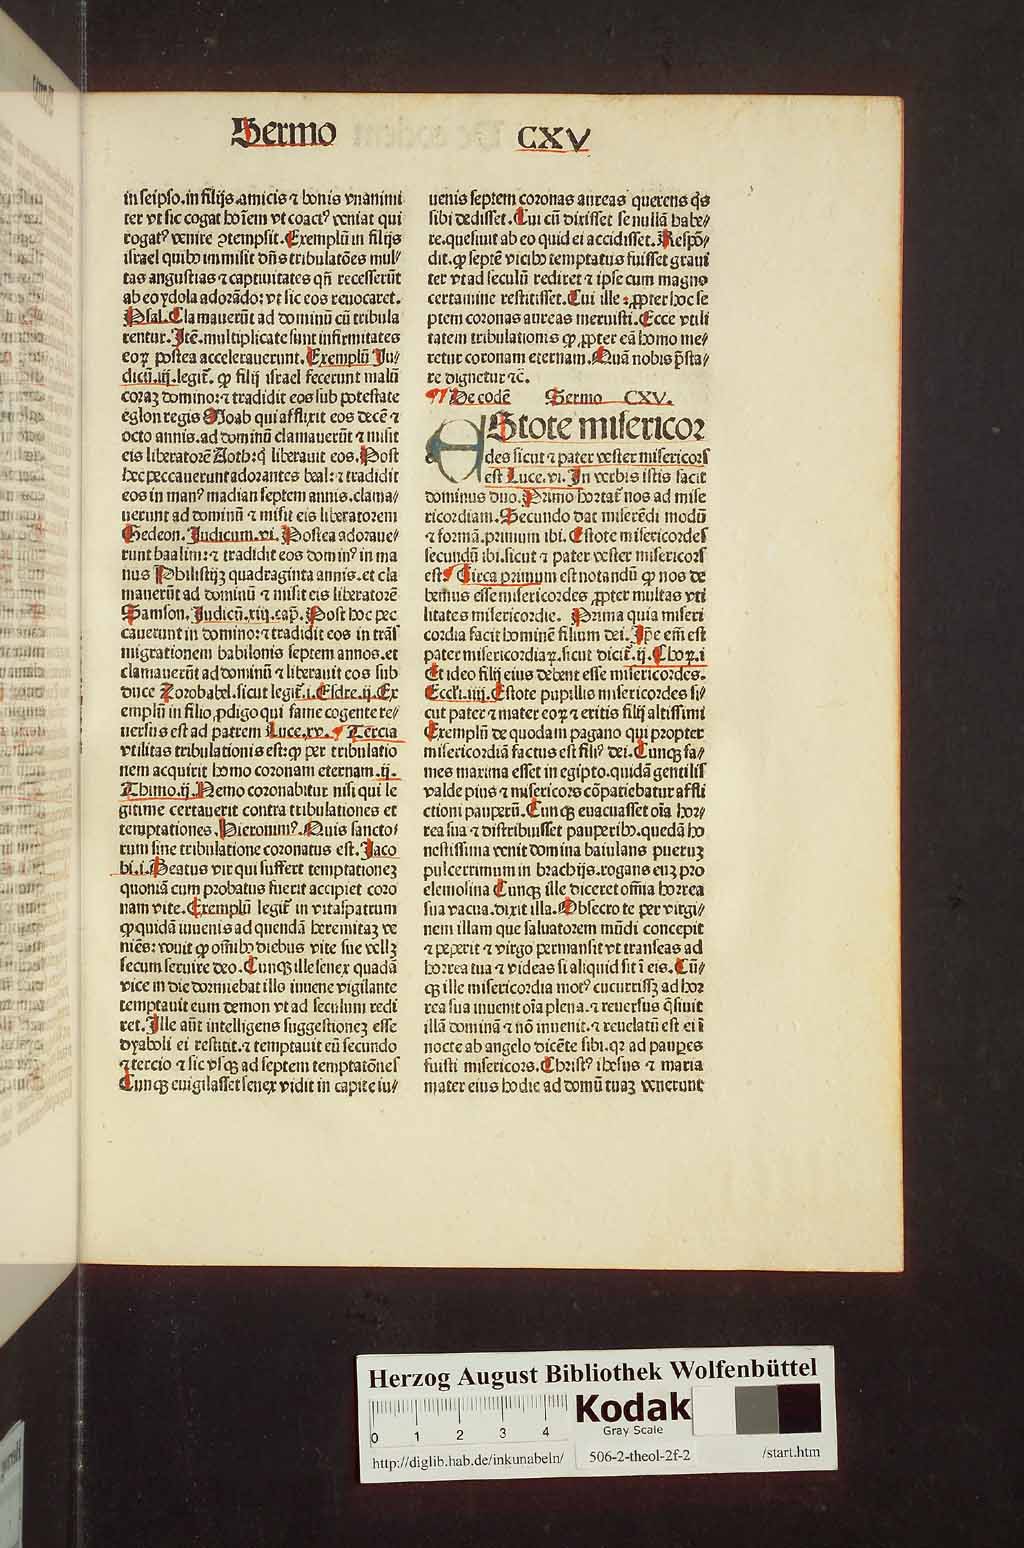 Sermo CXV
in seipso.in filijs.amicis ⁊ bonis vnanimi
ter vt sic cogat hoīem vt coactꝰ veniat qui
rogatꝰ venire ↄtempsit. Exemplū in filijs
israel quibꝰ immisit dn̄s tribulatōes mul⸗
tas angustias ⁊ captiuitates qn̄ recesserūt
ab eo ydola adorādo: vt sic eos reuocaret.
Psal. Clamauerūt ad dominū cū tribula
rentur. Itē. multiplicate sunt infirmitates
eoꝝ postea accelerauerunt. Exemplū Ju⸗
dicū.iij.legit᷑. ꝙ filij israel fecerunt malū
coraꝫ domino: ⁊ tradidit eos sub potestate
eglon regis Moab qui afflixit eos decē ⁊
octo annis. ad dominū clamauerūt ⁊ misit
eis liberatorē Aoth: q̇ liberauit eos. Post
hec peccauerunt adorantes baal: ⁊ tradidit
eos in manꝰ madian septem annis. clama⸗
uerunt ad dominū ⁊ misit eis liberatorem
Gedeon. Judicum.vi. Postea adoraue⸗
runt baalim: ⁊ tradidit eos dominꝰ in ma
nus Philistijꝫ quadraginta annis. et cla
mauerūt ad dominū ⁊ misit eis liberatorē
Samson. Judicū.xiij.cap̄. Post hoc pec
cauerunt in domino: ⁊ tradidit eos in trās
migrationem babilonis septem annos. et
clamauerūt ad dominū ⁊ liberauit eos sub
duce Zorobabel. sicut legit᷑.i.Esdre.ij. Ex
emplū in filio ꝓdigo qui fame cogente re⸗
uersus est ad patrem Luce.xv. ¶ Tercia
vtilitas tribulationis est: ꝙ per tribulatio
nem acquirit homo coronam eternam.ij.
Thimo.ij. Nemo coronabitur nisi qui le
gitime certauerit contra tribulationes et
temptationes. Hieronimꝰ. Quis sancto⸗
rum sine tribulatione coronatus est. Jaco
bi.i. Beatus vir qui suffert temptationeꝫ
quoniā cum probatus fuerit accipiet coro
nam vite. Exemplū legit᷑ in vitaspatrum
ꝙ quidā iuuenis ad quendā heremitaꝫ ve
niēs: vouit ꝙ om̄ibꝰ diebus vite sue vellꝫ
secum seruire deo. Cunqꝫ ille senex quadā
vice in die dormiebat illo iuuene vigilante
temptauit eum demon vt ad seculum redi
ret. Ille aūt intelligens suggestioneꝫ esse
dyaboli ei restitit. ⁊ temptauit eū secundo
⁊ tercio ⁊ sic vsqꝫ ad septem temptatōnes
Cunqꝫ euigilasset senex vidit in capite iu⸗
uenis septem coronas aureas querens q̇s
sibi dedisset. Cui cū dixisset se nullā habe⸗
re. quesiuit ab eo quid ei accidisset. Respō⸗
dit. ꝙ septē vicibꝰ temptatus fuisset graui
ter vt ad seculū rediret ⁊ ipse cum magno
certamine restitisset. Cui ille: ꝓpter hoc se
ptem coronas aureas meruisti. Ecce vtili
tatem tribulationis ꝙ ꝓpter eā homo me⸗
retur coronam eternam. Quā nobis p̄sta⸗
re dignetur ⁊c̄.
¶ De eodē Sermo CXV.
EStote misericor
des sicut ⁊ pater vester misericors
est Luce.vi. In verbis istis facit
dominus duo. Primo hortat᷑ nos ad mise
ricordiam. Secundo dat miserēdi modū
⁊ formā. primum ibi. Estote misericordes
secundū ibi. sicut ⁊ pater vester misericors
est. ¶ Circa primum est notandū ꝙ nos de
bemus esse misericordes ꝓpter multas vti
litates misericordie. Prima quia miseri
cordia facit hominē filium dei. Ip̄e em̄ est
pater misericordiaꝝ. sicut dicit᷑.ij. Choꝝ.i
Et ideo filij eius debent esse misericordes.
Eccli.iiij. Estote pupillis misericordes si⸗
cut pater ⁊ mater eoꝝ ⁊ eritis filij altissimi
Exemplū de quodam pagano qui propter
misericordiā factus est filiꝰ dei. Cunqꝫ fa⸗
mes maxima esset in egipto. quidā gentilis
valde pius ⁊ misericors cōpatiebatur affli
ctioni pauperū. Cunqꝫ euacuasset oīa hor⸗
rea sua ⁊ distribuisset pauperibꝰ. quedā ho
nestissima venit domina baiulans pueruꝫ
pulcerrimum in brachijs. rogans euꝫ pro
elemosina Cunqꝫ ille diceret om̄ia horrea
sua vacua. dixit illa. Obsecro te per virgi⸗
nem illam que saluatorem mūdi concepit
⁊ peperit ⁊ virgo permansit vt transeas ad
horrea tua ⁊ videas si aliquid sit ī eis. Cū⸗
qꝫ ille misericordia motꝰ cucurrissꝫ ad hor
rea sua inuenit oīa plena. ⁊ reuersus q̄siuit
illā dominā ⁊ nō inuenit. ⁊ reuelatū est ei ī
nocte ab angelo dicēte sibi. qꝛ ad paup̱es
fuisti misericors. Christꝰ ihesus ⁊ maria
mater eius hodie ad domū tuaꝫ venerunt
Herzog August Bibliothek Wolfenbüttel
0 1 2 3 4
Kodak
Gray Scale
http://diglib.hab.de/inkunabeln/ 506-2-theol-2f-2 /start.htm